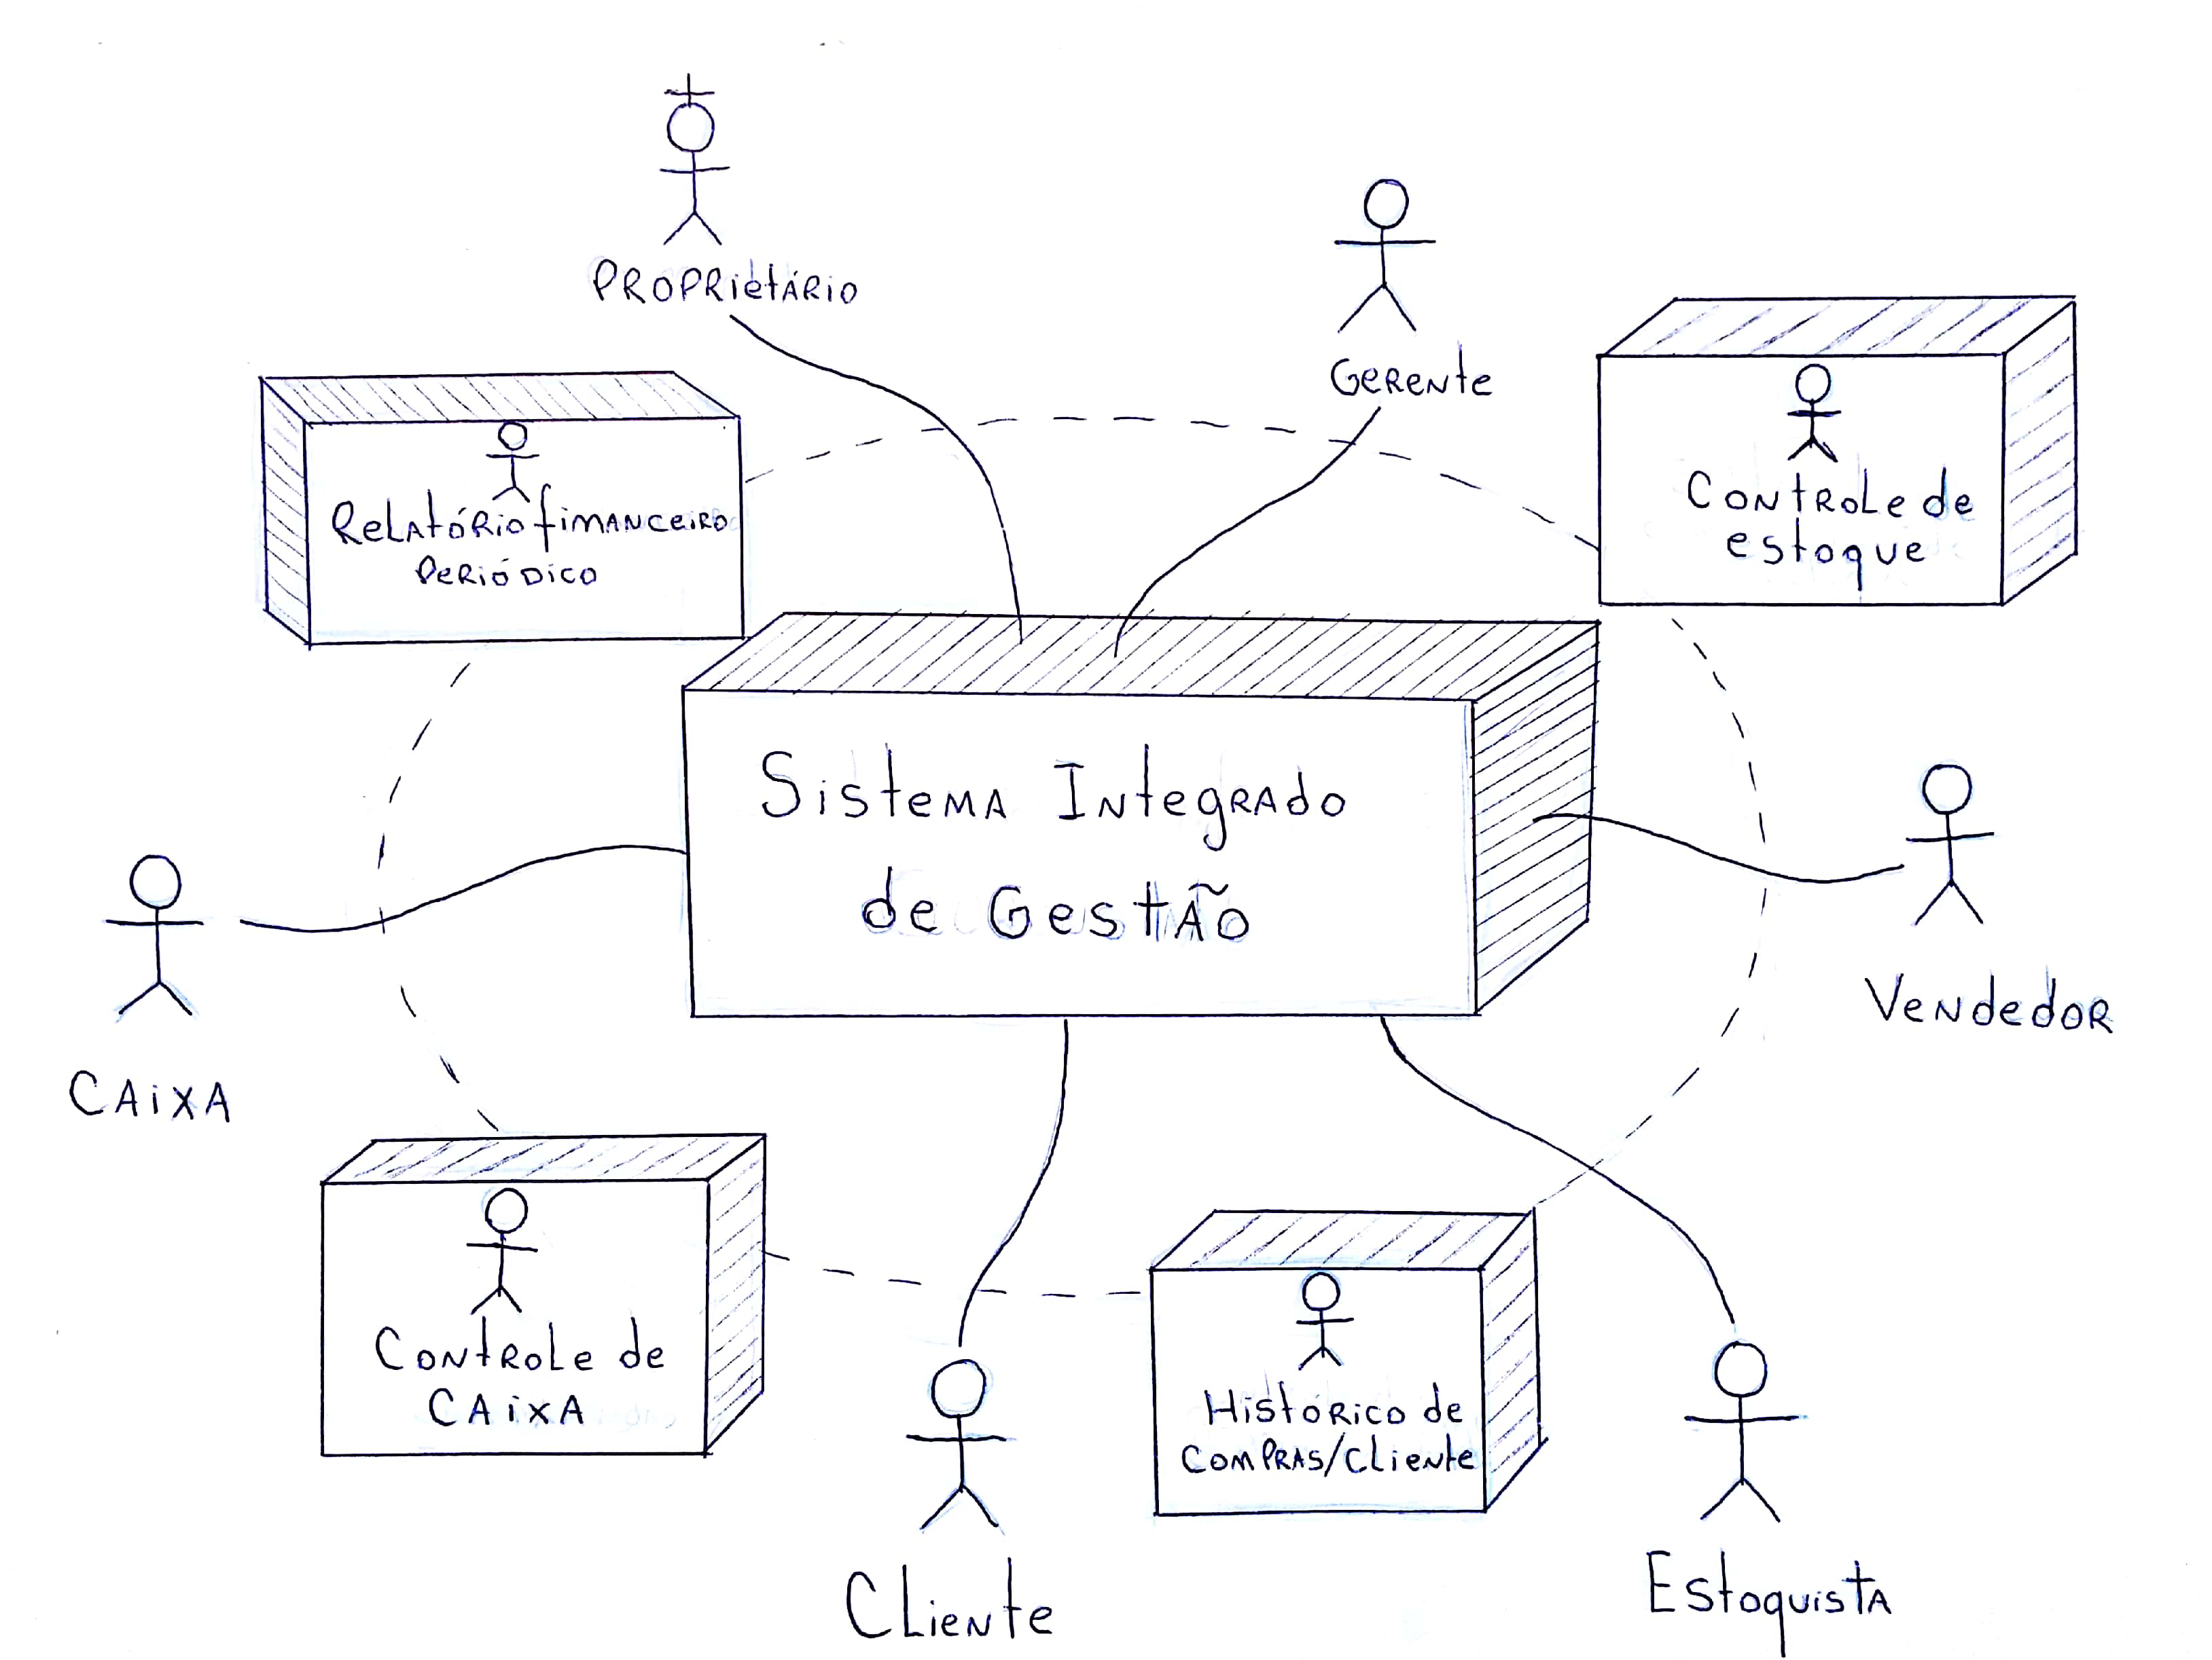 Proprietário
Gerente
Relatório fimanceiro
Periódico
Controle de
estoque
Sistema Integrado
de Gestão
Caixa
Vendedor
Controle de
Caixa
Histórico de
Compras/Cliente
Cliente
Estoquista